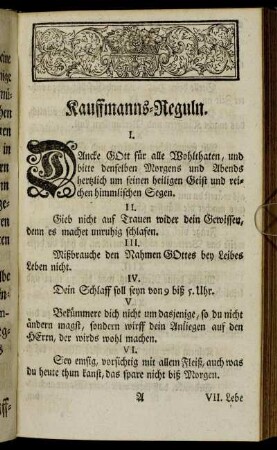 Kauffmanns-Reguln.
I.
DAncke GOtt für alle Wohlthaten, und
bitte denselben Morgens und Abends
hertzlich um seinen heiligen Geist und rei-
chen himmlischen Segen.
II.
Gieb nicht auf Trauen wider dein Gewissen,
denn es machet unruhig schlafen.
III.
Mißbrauche den Nahmen GOttes bey Leibes
Leben nicht.
IV.
Dein Schlaff soll seyn von 9 biß 5. Uhr.
V.
Bekümmere dich nicht um dasjenige, so du nicht
ändern magst, sondern wirff dein Anliegen auf den
HErrn, der wirds wohl machen.
VI.
Sey emsig, vorsichtig mit allem Fleiß, auch was
du heute thun kanst, das spare nicht biß Morgen.
A VII. Lebe